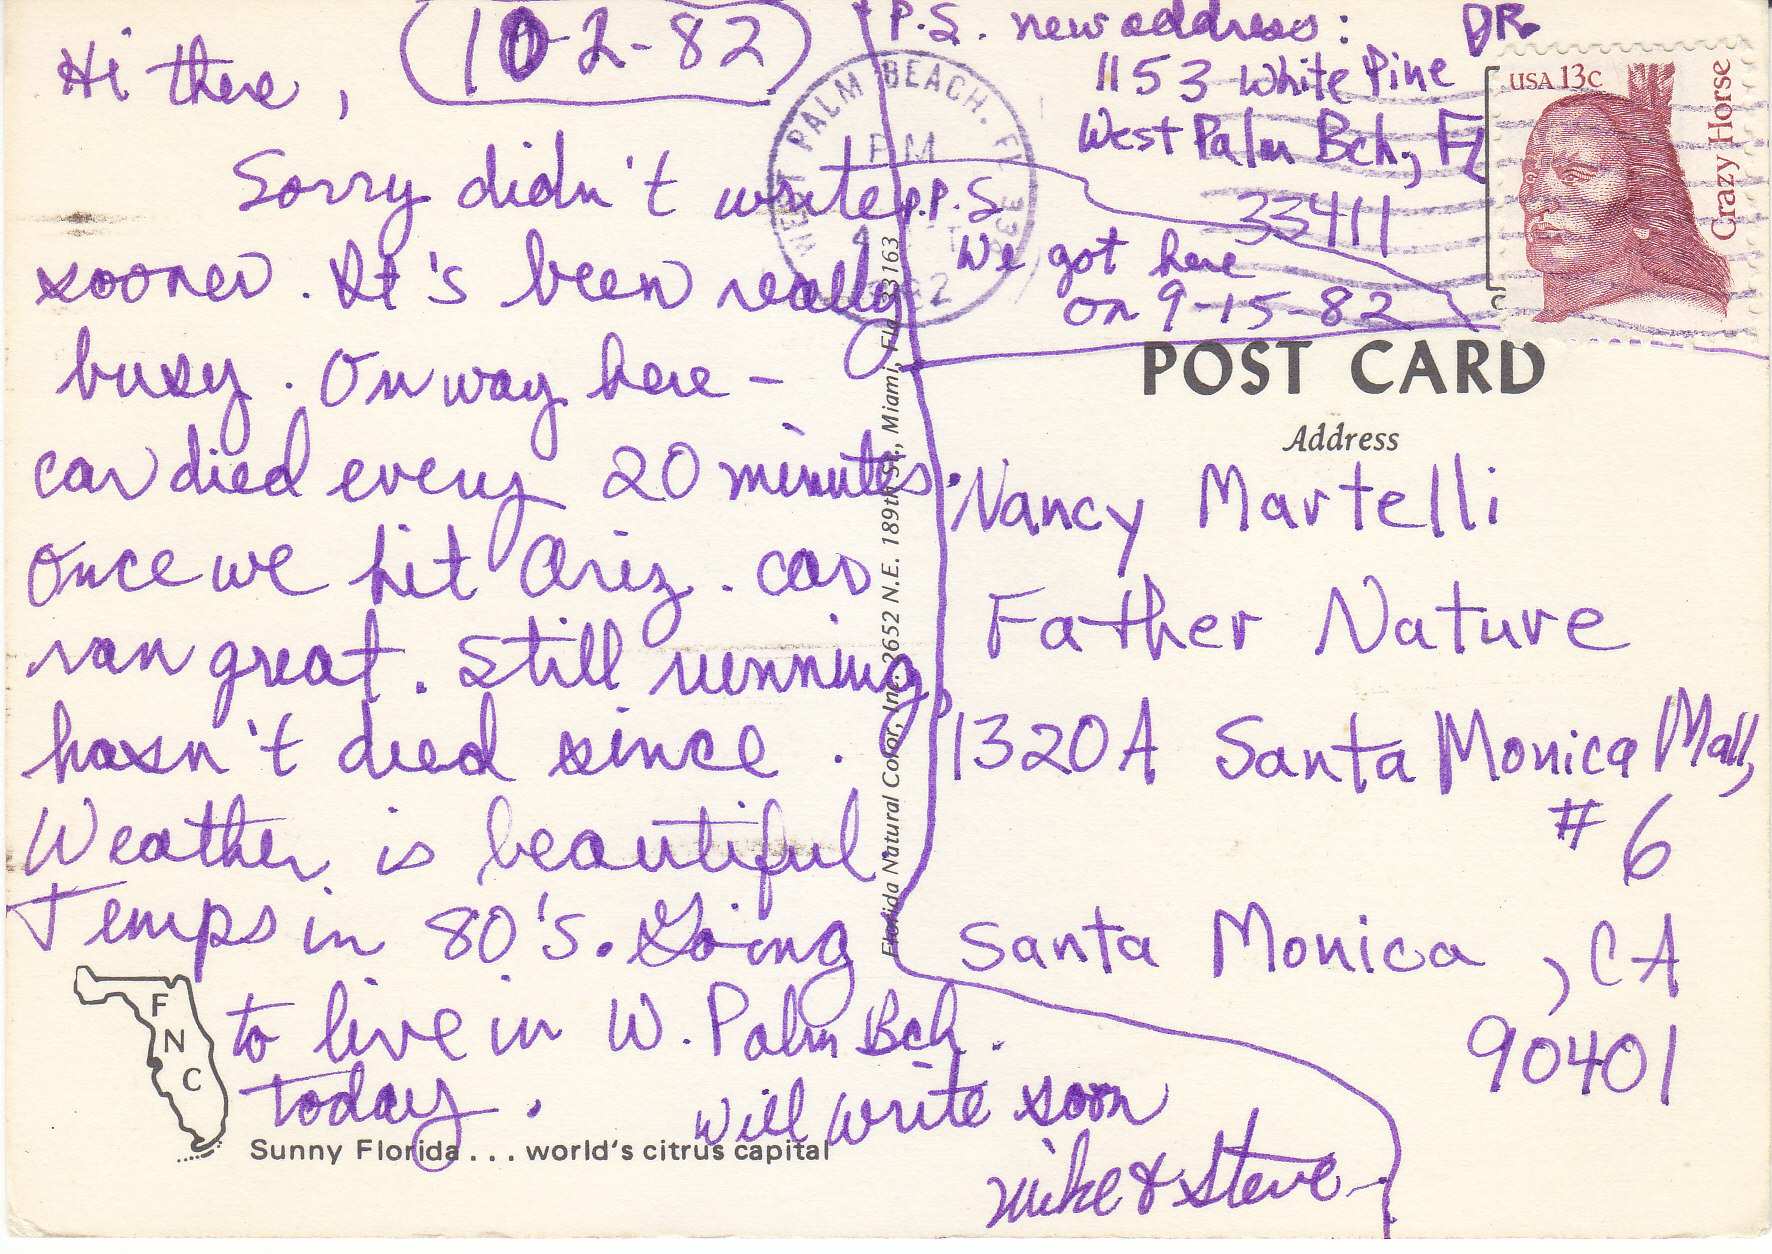 (10-2-82)
Hi there,
Sorry didn't write
sooner. It's been really
busy. On way here -
car died every 20 minutes.
Once we hit Ariz. car
ran great. Still running,
hasn't died since.
Weather is beautiful.
Temps in 80's. Going
to live in W. Palm Bch.
today.
will write soon
Mike & Steve
P.S. new address:
1153 White Pine DR.
West Palm Bch, FL
33411
P.P.S.
We got here
on 9-15-82
WEST PALM BEACH, FL
PM
1982
USA 13c
Crazy Horse
POST CARD
Address
Nancy Martelli
Father Nature
1320A Santa Monica Mall,
# 6
Santa Monica, CA
90401
Florida Natural Color, Inc. 2652 N.E. 189th St., Miami, Fla. 33163
F
N
C
Sunny Florida . . . world's citrus capital